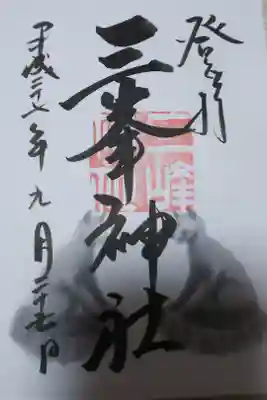 登拝
三峯神社
平成二十七年九月二十七日